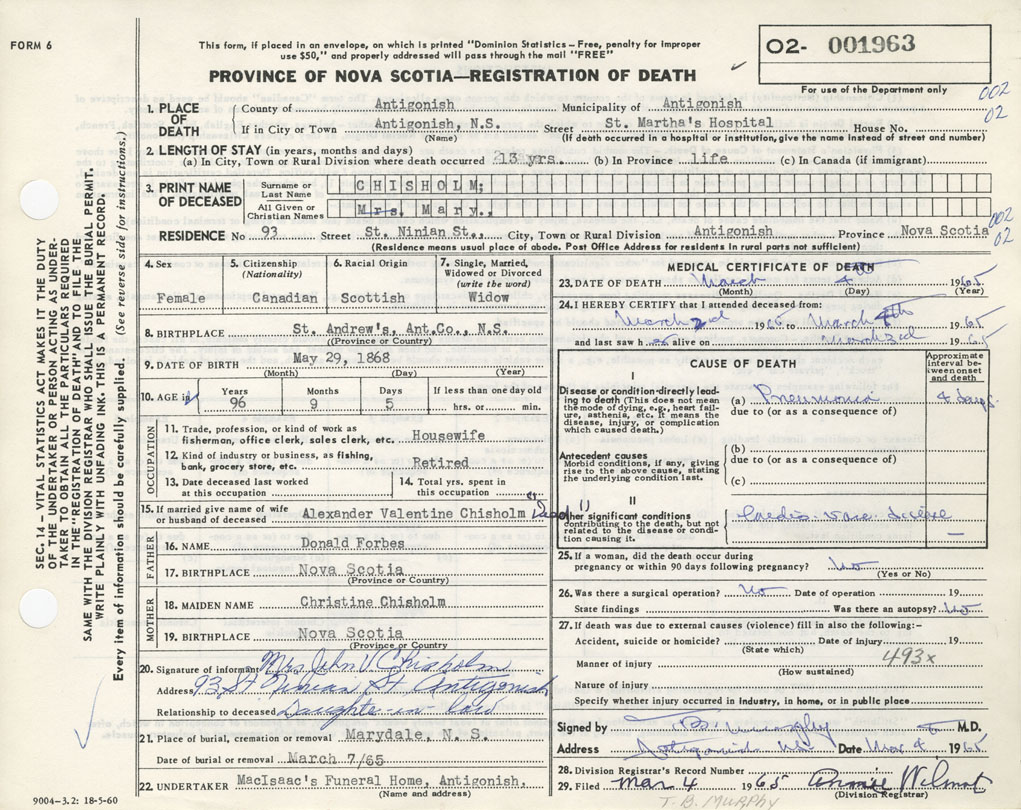 FORM 6
This form, if placed in an envelope, on which is printed "Dominion Statistics – Free, penalty for improper
use $50," and properly addressed will pass through the mail "FREE"
PROVINCE OF NOVA SCOTIA—REGISTRATION OF DEATH
O2- 001963
For use of the Department only
002
02
1. PLACE OF DEATH County of Antigonish Municipality of Antigonish
If in City or Town Antigonish, N.S. Street St. Martha's Hospital House No.
(Name) (If death occurred in a hospital or institution, give the name instead of street and number)
2. LENGTH OF STAY (in years, months and days)
(a) In City, Town or Rural Division where death occurred 13 yrs. (b) In Province life (c) In Canada (if immigrant)
3. PRINT NAME OF DECEASED
Surname or Last Name CHISHOLM;
All Given or Christian Names Mrs. Mary.,
002
02
RESIDENCE No 93 Street St. Ninian St., City, Town or Rural Division Antigonish Province Nova Scotia
(Residence means usual place of abode. Post Office Address for residents in rural parts not sufficient)
4. Sex Female
5. Citizenship (Nationality) Canadian
6. Racial Origin Scottish
7. Single, Married, Widowed or Divorced (write the word) Widow
8. BIRTHPLACE St. Andrew's, Ant.Co., N.S.
(Province or Country)
9. DATE OF BIRTH May 29, 1868
(Month) (Day) (Year)
10. AGE in Years 96 Months 9 Days 5 If less than one day old hrs. or min.
OCCUPATION
11. Trade, profession, or kind of work as fisherman, office clerk, sales clerk, etc. Housewife
12. Kind of industry or business, as fishing, bank, grocery store, etc. Retired
13. Date deceased last worked at this occupation
14. Total yrs. spent in this occupation
15. If married give name of wife or husband of deceased Alexander Valentine Chisholm
FATHER
16. NAME Donald Forbes
17. BIRTHPLACE Nova Scotia
(Province or Country)
MOTHER
18. MAIDEN NAME Christine Chisholm
19. BIRTHPLACE Nova Scotia
(Province or Country)
20. Signature of informant Mrs John V Chisholm
Address 93 St Ninian St Antigonish
Relationship to deceased Daughter-in law
21. Place of burial, cremation or removal Marydale, N. S.
Date of burial or removal March 7/65
22. UNDERTAKER MacIsaac's Funeral Home, Antigonish.
(Name and address)
MEDICAL CERTIFICATE OF DEATH
23. DATE OF DEATH March 4th 1965
(Month) (Day) (Year)
24. I HEREBY CERTIFY that I attended deceased from:
March 2d 1965 to March 4th 1965
and last saw her alive on March 3d 1965
CAUSE OF DEATH
Approximate interval between onset and death
I
Disease or condition directly leading to death (This does not mean the mode of dying, e.g., heart failure, asthenia, etc. It means the disease, injury, or complication which caused death.)
(a) Pneumonia 4 days.
due to (or as a consequence of)
Antecedent causes
Morbid conditions, if any, giving rise to the above cause, stating the underlying condition last.
(b)
due to (or as a consequence of)
(c)
II
Other significant conditions
contributing to the death, but not related to the disease or condition causing it.
Cardio-vasc. disease –
25. If a woman, did the death occur during pregnancy or within 90 days following pregnancy? No
(Yes or No)
26. Was there a surgical operation? No Date of operation 19
State findings Was there an autopsy? No
27. If death was due to external causes (violence) fill in also the following:-
Accident, suicide or homicide? Date of injury 19
(State which)
493x
Manner of injury
(How sustained)
Nature of injury
Specify whether injury occurred in Industry, in home, or in public place
Signed by M.D.
Address Antigonish NS Date Mar 4 1965
28. Division Registrar's Record Number
29. Filed Mar 4 1965 Annie Wilmot
(Division Registrar)
T. B. MURPHY
9004–3.2: 18-5-60
SEC. 14 – VITAL STATISTICS ACT MAKES IT THE DUTY
OF THE UNDERTAKER OR PERSON ACTING AS UNDER-
TAKER TO OBTAIN ALL THE PARTICULARS REQUIRED
IN THE "REGISTRATION OF DEATH" AND TO FILE THE
SAME WITH THE DIVISION REGISTRAR WHO SHALL ISSUE THE BURIAL PERMIT.
WRITE PLAINLY WITH UNFADING INK. THIS IS A PERMANENT RECORD.
Every item of Information should be carefully supplied. (See reverse side for instructions.)